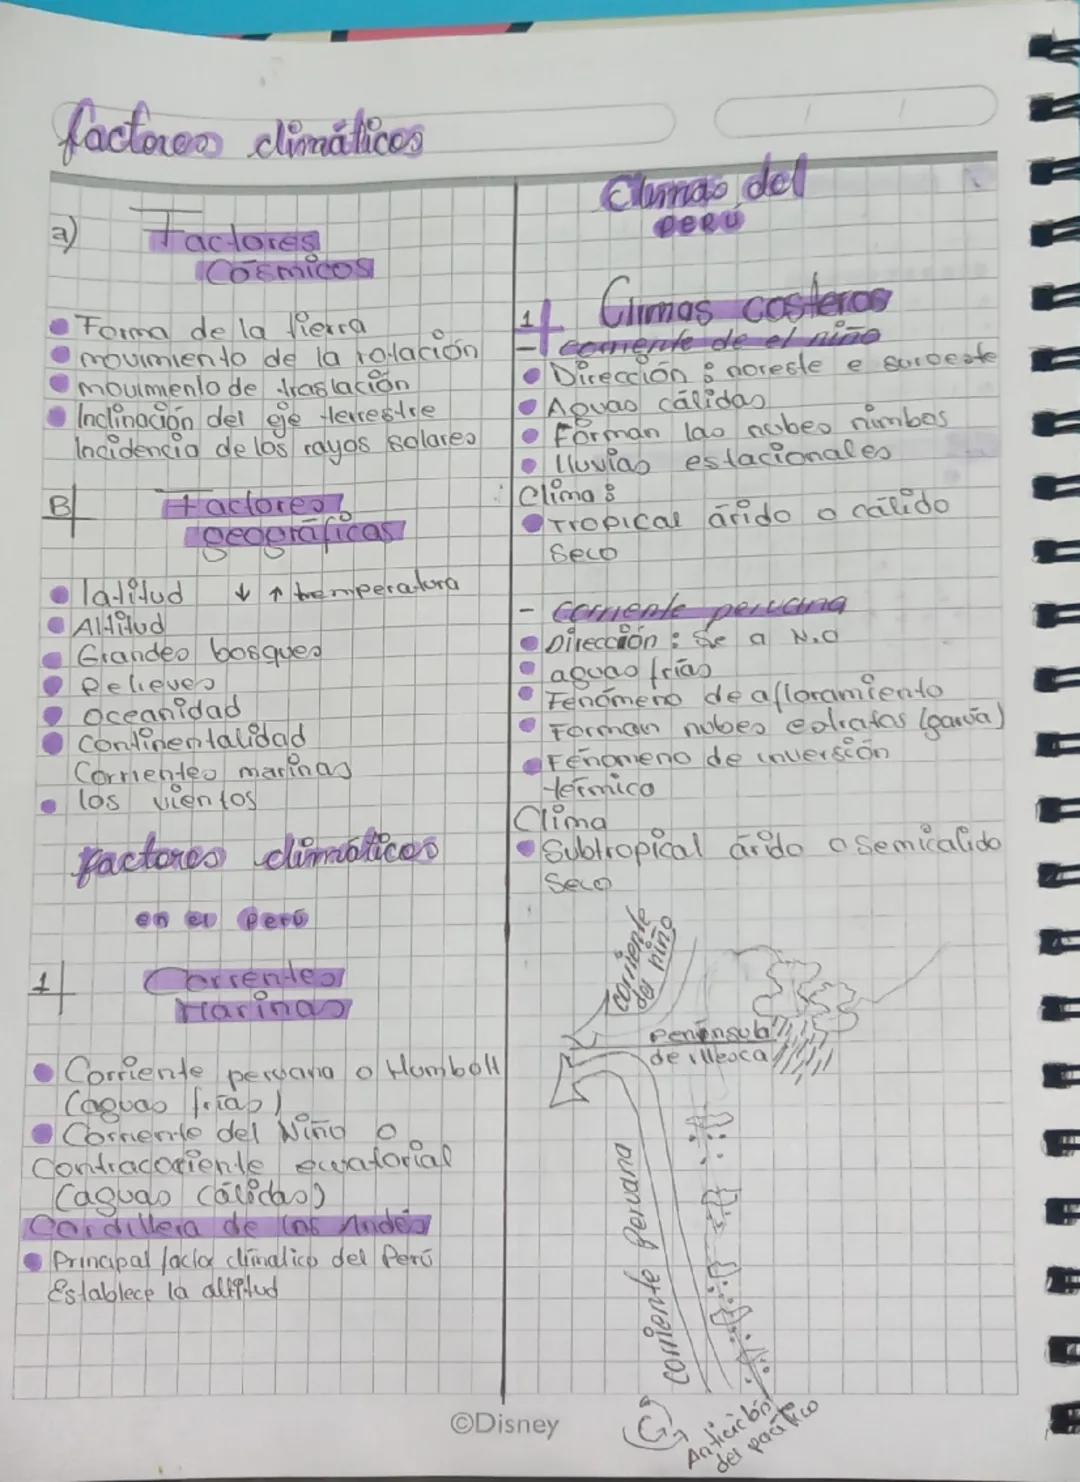 factores climáticos
a) Factores
Cosmicos
Forma de la tierra
movimiento de la rotación
movimiento de traslación
Inclinación del eje terrestre
Incidencia de los rayos solares
B Factores
geográficas
latitud ↓ ↑ temperatura
Altitud
Grandes bosques
Relieves
oceanidad
continentalidad
Corrientes marinas
los vientos
factores climáticos
en el Perú
1 Corrientes
Marinas
Corriente peruana o Humbolt
(aguas frias)
Corriente del Niño o
Contracorriente ecuatorial
(aguas cálidas)
Cordillera de los Andes
Principal factor climatico del Perú
Establece la altitud
Climas del
PERÚ
1 Climas costeros
- corriente de el niño
Dirección: noreste e suroeste
Aguas cálidas
Forman las nubes nimbos
lluvias estacionales
Clima:
Tropical árido o cálido
Seco
- corriente peruana
Dirección: Se a N.O
aguas frías
Fenómeno de afloramiento
Forman nubes estratos (garúa)
Fenomeno de inversión
térmica
Clima
Subtropical árido o Semicalido
Seco
corriente
del niño
Penínsuba
de illesca
corriente Peruana
Anticiclón
del pacífico
©Disney